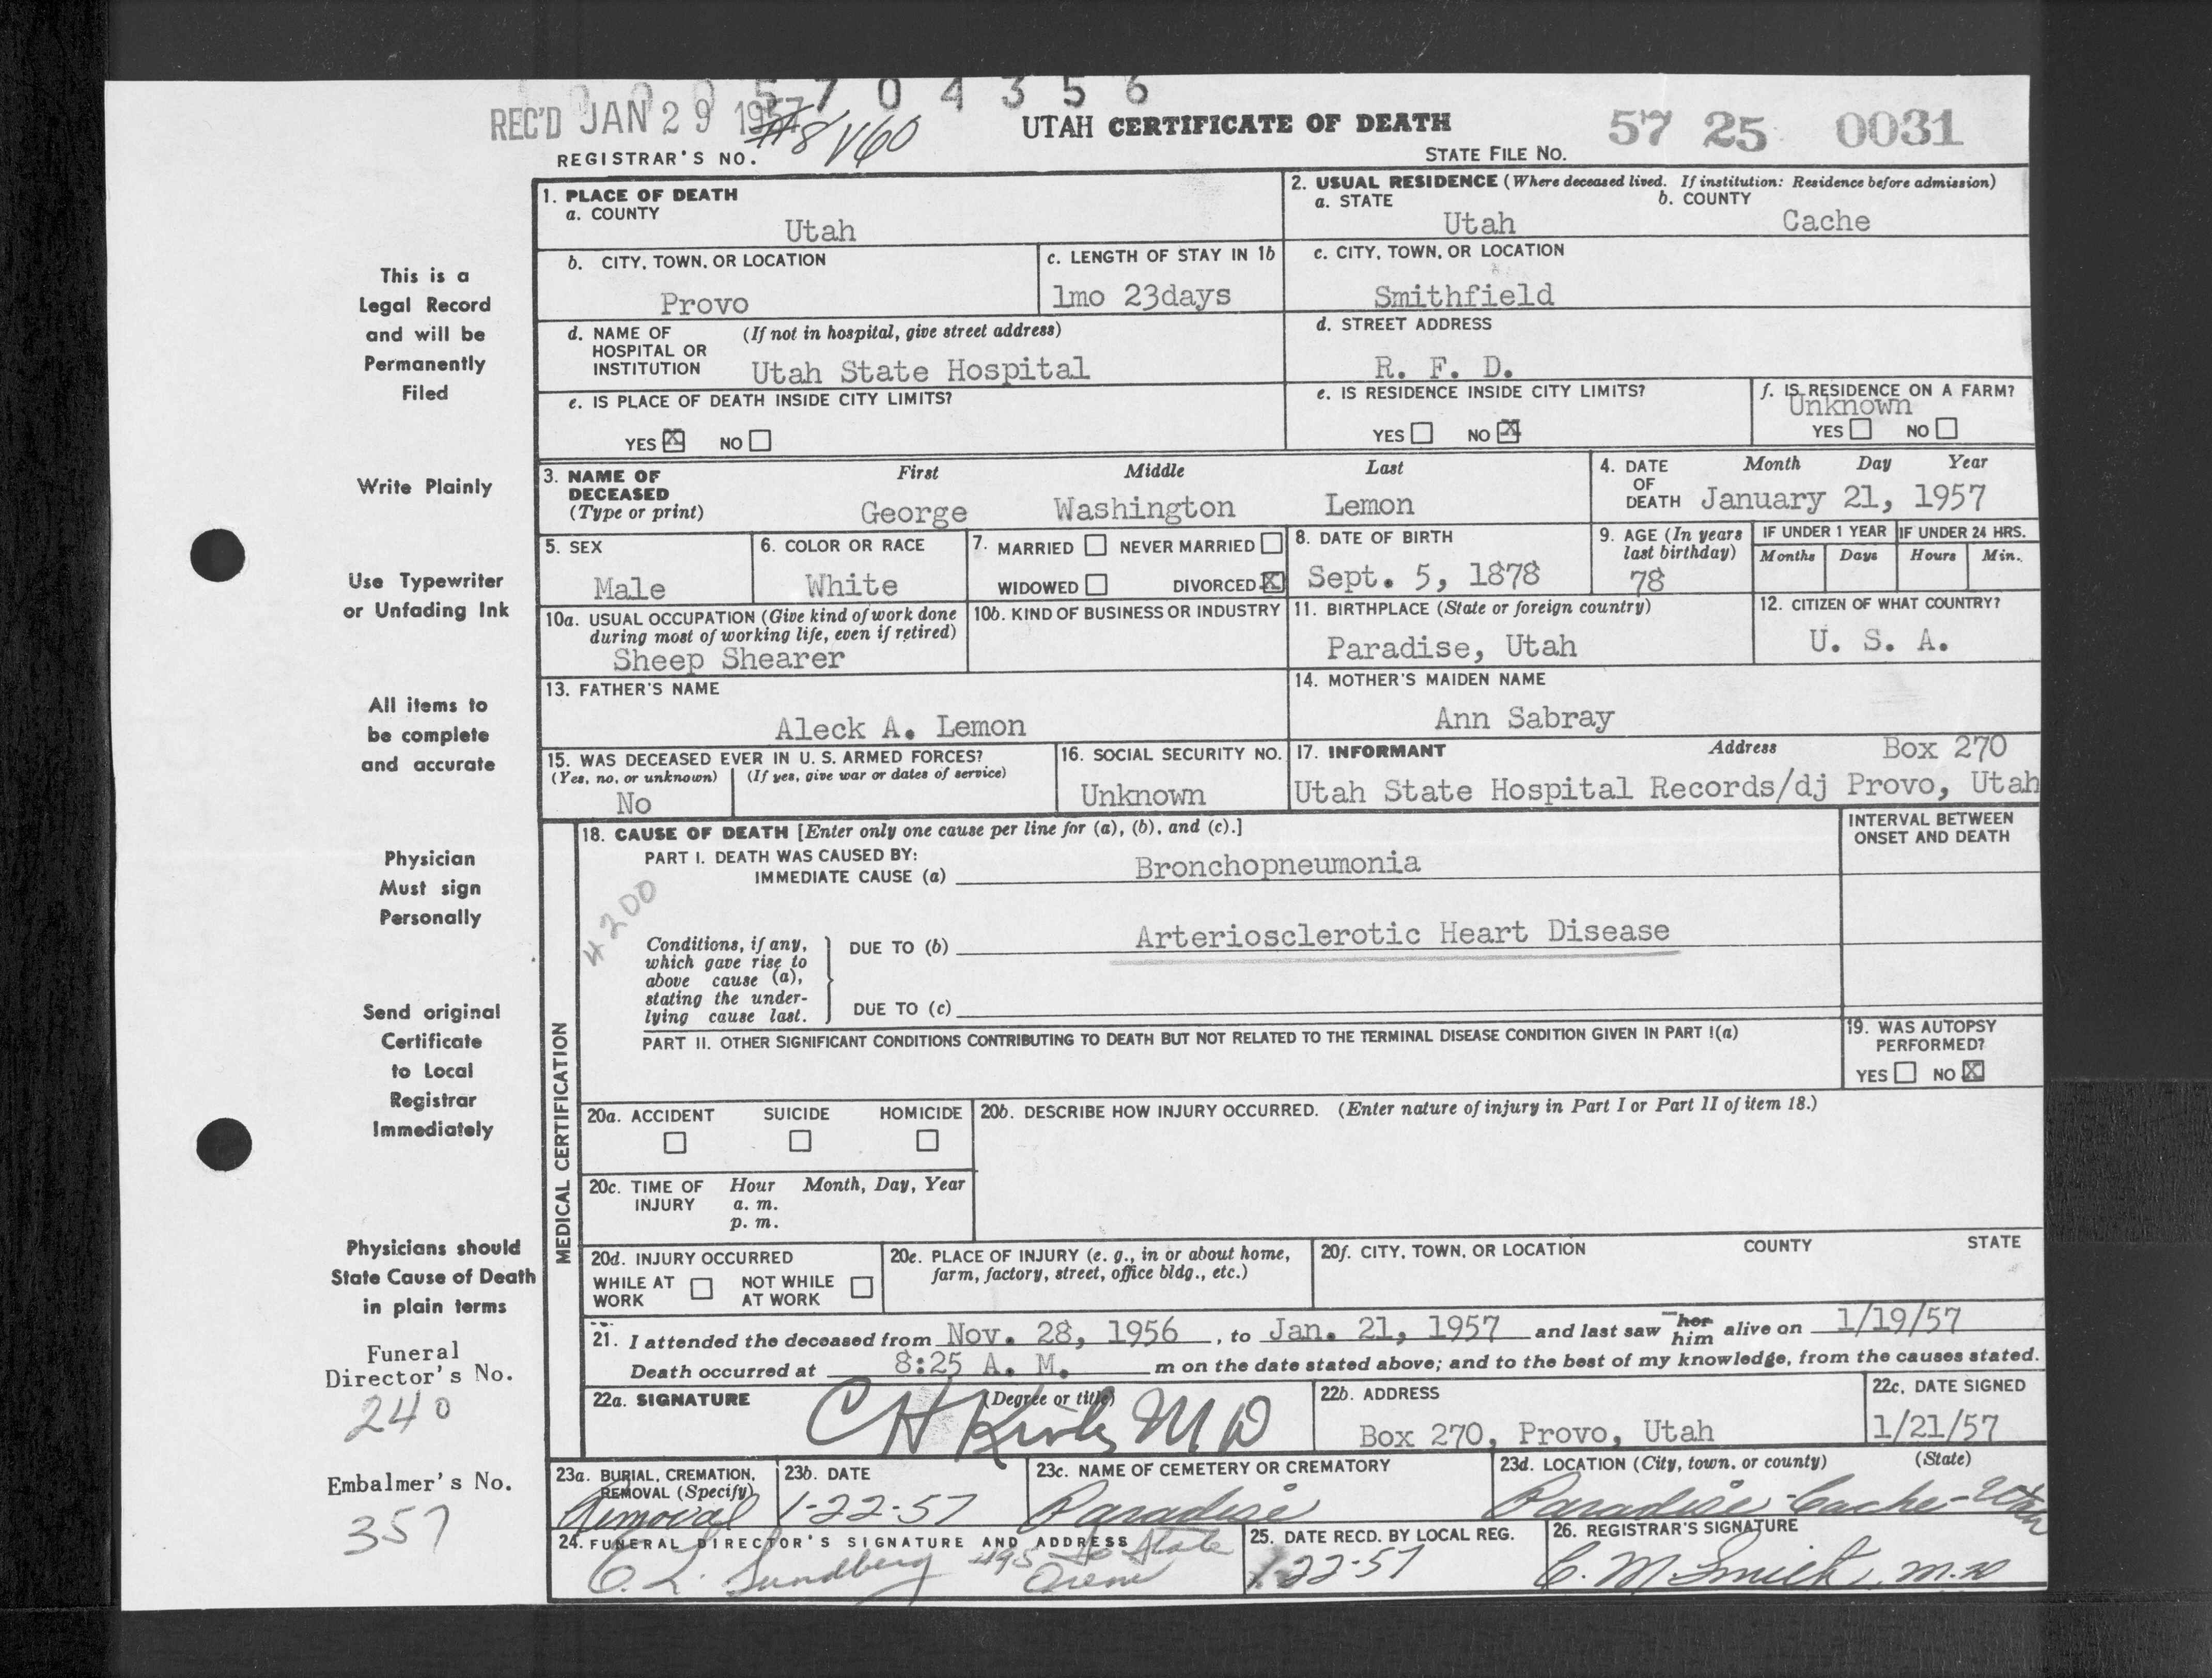 5 7 0 4 3 5 6
REC'D JAN 29 1957
UTAH CERTIFICATE OF DEATH
57 25 0031
REGISTRAR'S NO.
STATE FILE NO.
1. PLACE OF DEATH
a. COUNTY
Utah
2. USUAL RESIDENCE (Where deceased lived. If institution: Residence before admission)
a. STATE
Utah
b. COUNTY
Cache
b. CITY, TOWN, OR LOCATION
Provo
c. LENGTH OF STAY IN 1b
1mo 23days
c. CITY, TOWN, OR LOCATION
Smithfield
d. NAME OF HOSPITAL OR INSTITUTION
(If not in hospital, give street address)
Utah State Hospital
d. STREET ADDRESS
R. F. D.
e. IS PLACE OF DEATH INSIDE CITY LIMITS?
YES X NO
e. IS RESIDENCE INSIDE CITY LIMITS?
YES NO X
f. IS RESIDENCE ON A FARM?
Unknown
YES NO
3. NAME OF DECEASED (Type or print)
First Middle Last
George Washington Lemon
4. DATE OF DEATH
Month Day Year
January 21, 1957
5. SEX
Male
6. COLOR OR RACE
White
7. MARRIED NEVER MARRIED
WIDOWED DIVORCED X
8. DATE OF BIRTH
Sept. 5, 1878
9. AGE (In years last birthday)
78
IF UNDER 1 YEAR
Months Days
IF UNDER 24 HRS.
Hours Min.
10a. USUAL OCCUPATION (Give kind of work done
during most of working life, even if retired)
Sheep Shearer
10b. KIND OF BUSINESS OR INDUSTRY
11. BIRTHPLACE (State or foreign country)
Paradise, Utah
12. CITIZEN OF WHAT COUNTRY?
U. S. A.
13. FATHER'S NAME
Aleck A. Lemon
14. MOTHER'S MAIDEN NAME
Ann Sabray
15. WAS DECEASED EVER IN U. S. ARMED FORCES?
(Yes, no, or unknown) (If yes, give war or dates of service)
No
16. SOCIAL SECURITY NO.
Unknown
17. INFORMANT Address Box 270
Utah State Hospital Records/dj Provo, Utah
MEDICAL CERTIFICATION
18. CAUSE OF DEATH [Enter only one cause per line for (a), (b), and (c).]
INTERVAL BETWEEN
ONSET AND DEATH
PART I. DEATH WAS CAUSED BY:
IMMEDIATE CAUSE (a) Bronchopneumonia
4200
Conditions, if any,
which gave rise to
above cause (a),
stating the under-
lying cause last.
DUE TO (b) Arteriosclerotic Heart Disease
DUE TO (c)
PART II. OTHER SIGNIFICANT CONDITIONS CONTRIBUTING TO DEATH BUT NOT RELATED TO THE TERMINAL DISEASE CONDITION GIVEN IN PART I(a)
19. WAS AUTOPSY
PERFORMED?
YES NO X
20a. ACCIDENT SUICIDE HOMICIDE
20b. DESCRIBE HOW INJURY OCCURRED. (Enter nature of injury in Part I or Part II of item 18.)
20c. TIME OF INJURY
Hour Month, Day, Year
a. m.
p. m.
20d. INJURY OCCURRED
WHILE AT WORK NOT WHILE AT WORK
20e. PLACE OF INJURY (e. g., in or about home,
farm, factory, street, office bldg., etc.)
20f. CITY, TOWN, OR LOCATION COUNTY STATE
21. I attended the deceased from Nov. 28, 1956, to Jan. 21, 1957 and last saw her him alive on 1/19/57
Death occurred at 8:25 A. M. m on the date stated above; and to the best of my knowledge, from the causes stated.
22a. SIGNATURE (Degree or title)
M D
22b. ADDRESS
Box 270, Provo, Utah
22c. DATE SIGNED
1/21/57
23a. BURIAL, CREMATION,
REMOVAL (Specify)
Removal
23b. DATE
1-22-57
23c. NAME OF CEMETERY OR CREMATORY
Paradise
23d. LOCATION (City, town, or county) (State)
Paradise-Cache-Utah
24. FUNERAL DIRECTOR'S SIGNATURE AND ADDRESS
O. L. Sundberg 495 So State
Orem
25. DATE RECD. BY LOCAL REG.
1-22-57
26. REGISTRAR'S SIGNATURE
C. M. Smith, M.D
This is a
Legal Record
and will be
Permanently
Filed
Write Plainly
Use Typewriter
or Unfading Ink
All items to
be complete
and accurate
Physician
Must sign
Personally
Send original
Certificate
to Local
Registrar
Immediately
Physicians should
State Cause of Death
in plain terms
Funeral
Director's No.
240
Embalmer's No.
357